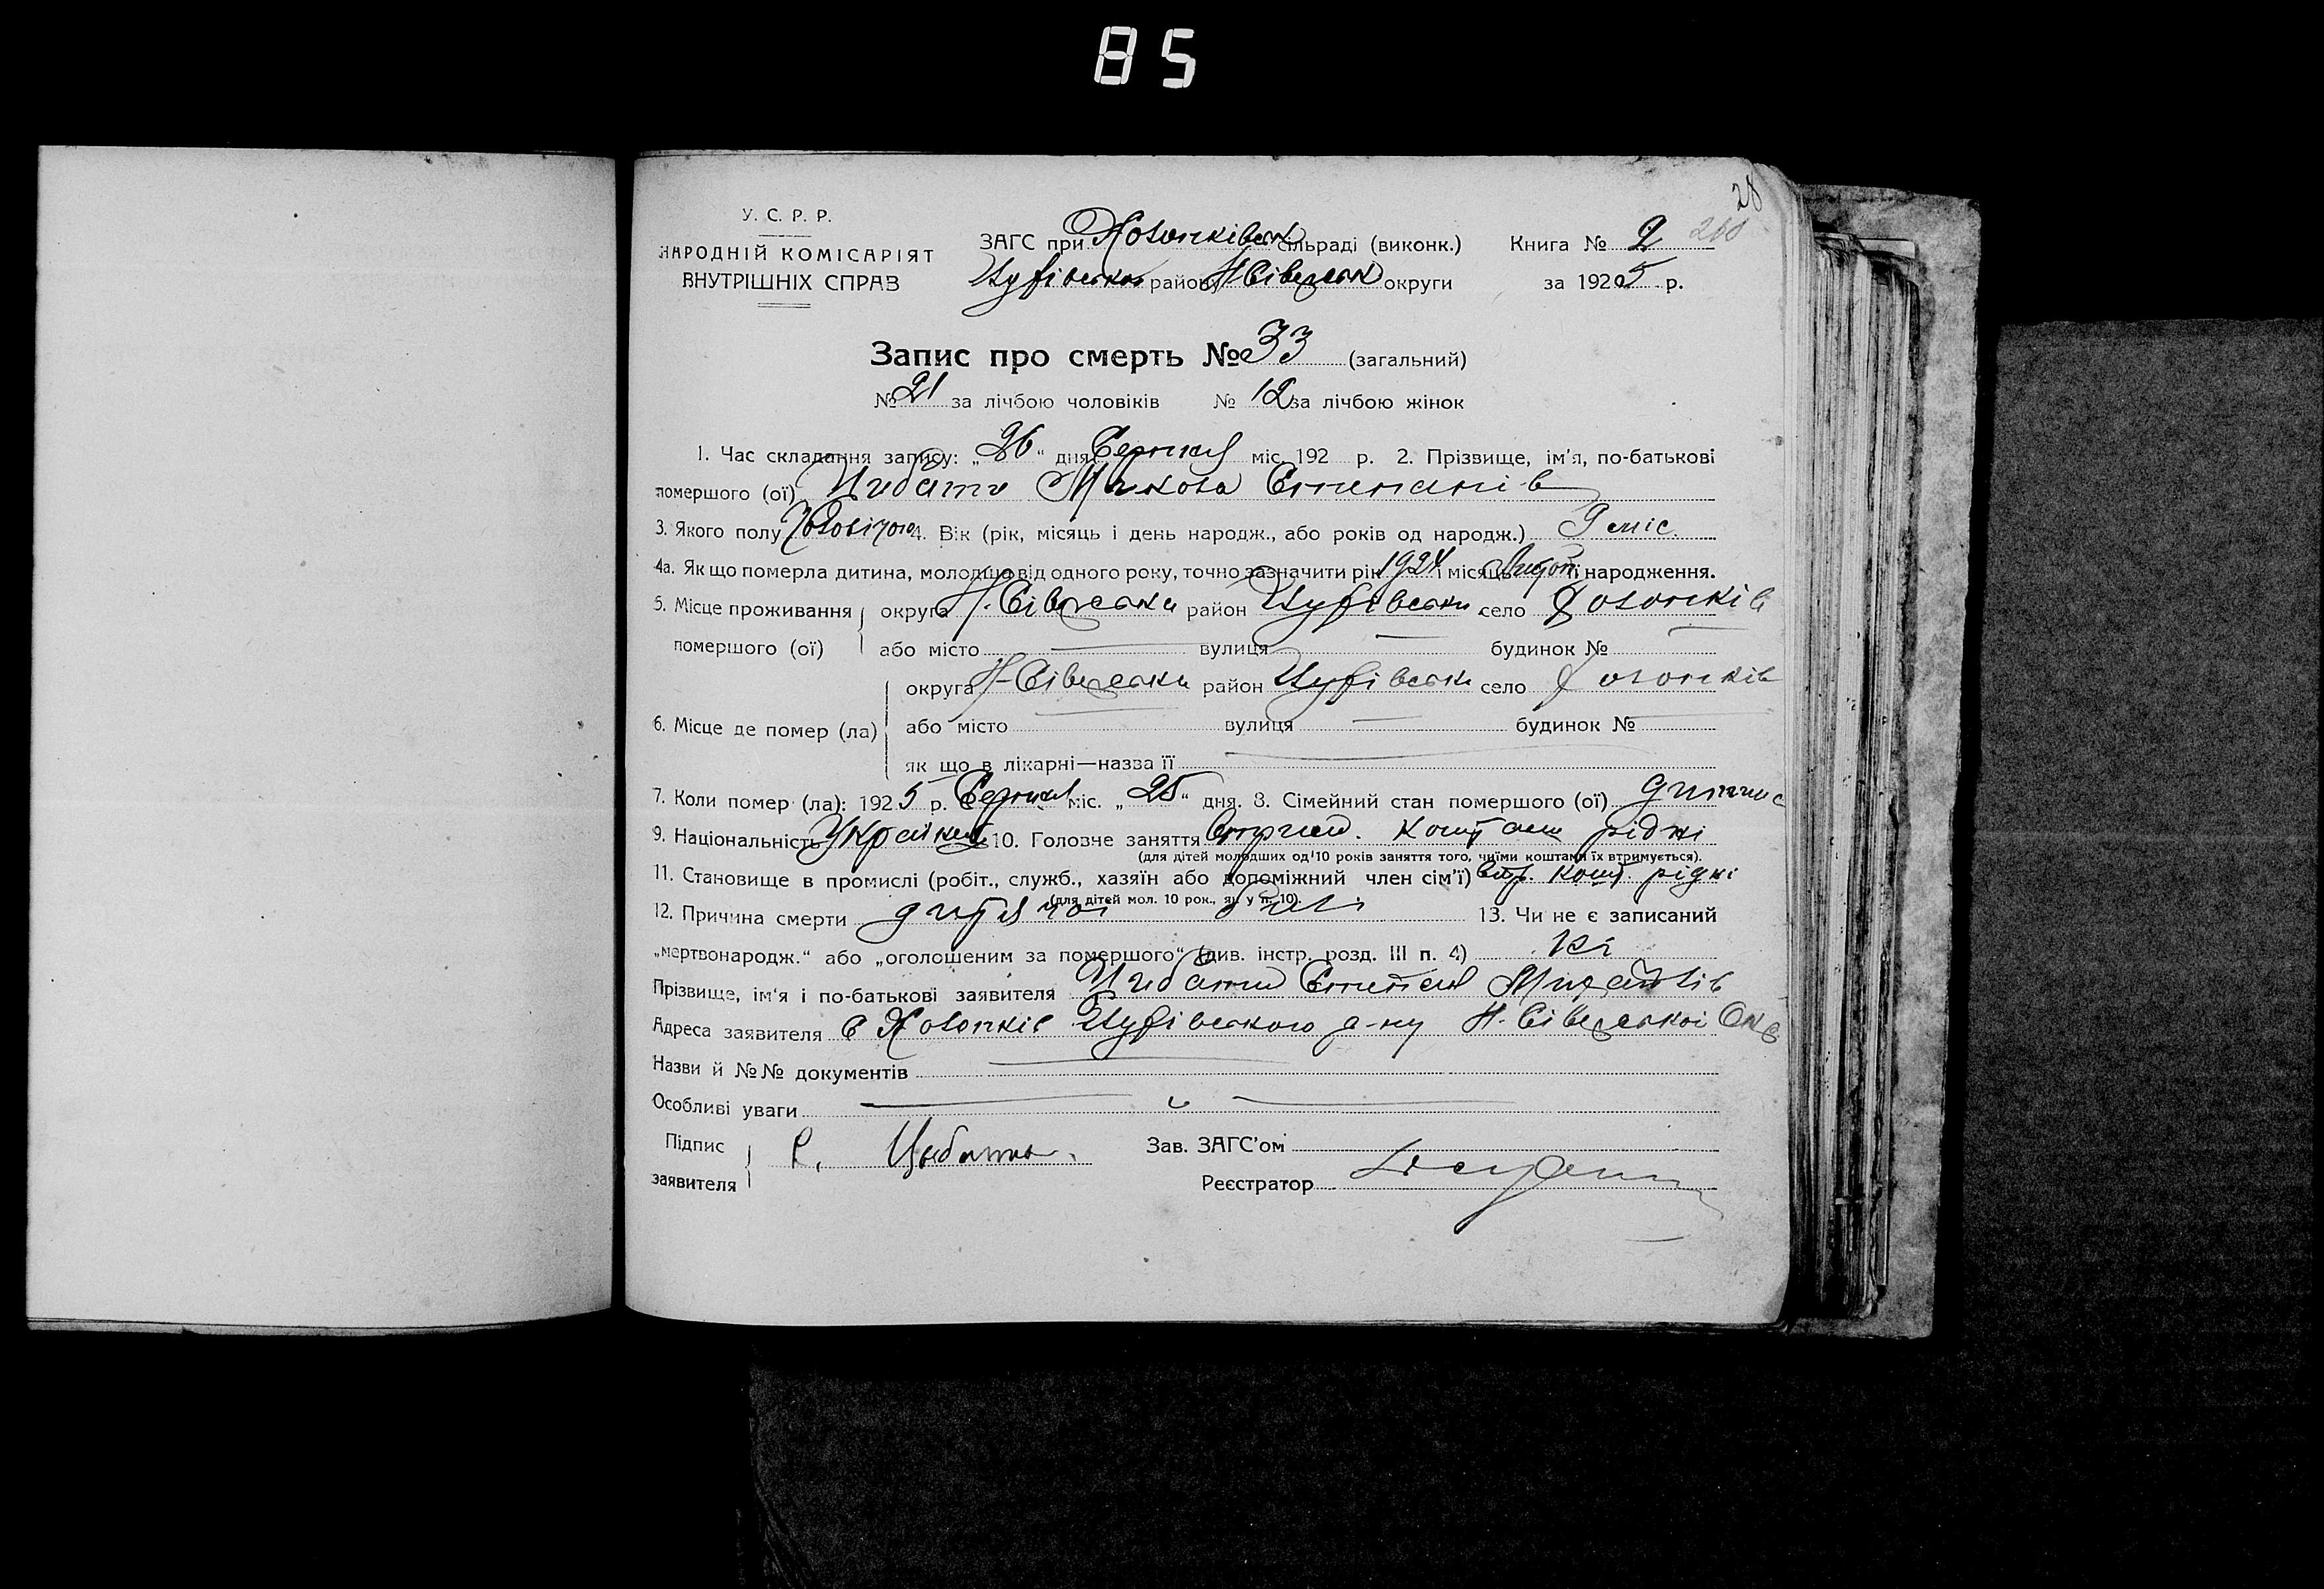 85
28
260
У. С. Р. Р.
НАРОДНІЙ КОМІСАРІЯТ
ВНУТРІШНІХ СПРАВ
ЗАГС при Холопківськ сільраді (виконк.) Книга № 2
району Н Сіверськ округи за 1925 р.
Запис про смерть № 33 (загальний)
№ 21 за лічбою чоловіків № 12 за лічбою жінок
1. Час складання запису: „26“ дня Серпня міс. 192 р. 2. Прізвище, ім'я, по-батькові
помершого (ої) Цибати Микола Степанів
3. Якого полу Чоловічого 4. Вік (рік, місяць і день народж., або років од народж.) 9 міс.
4а. Як що померла дитина, молодша від одного року, точно зазначити рік 1924 і місяць народження.
5. Місце проживання округа Н. Сіверська район село Холопків
помершого (ої) або місто вулиця будинок №
округа Н-Сіверська район село Холопків
6. Місце де помер (ла) або місто вулиця будинок №
як що в лікарні—назва її
7. Коли помер (ла): 1925 р. Серпня міс. „25“ дня. 8. Сімейний стан помершого (ої) дитина
9. Національність Україн. 10. Головне заняття Утрим. коштам рідні
(для дітей молодших од 10 років заняття того, чиїми коштами їх втримується).
11. Становище в промислі (робіт., служб., хазяїн або допоміжний член сім'ї) Утр. кошт. рідні
(для дітей мол. 10 рок., як у п. 10).
12. Причина смерти дитячої 13. Чи не є записаний
„мертвонародж.“ або „оголошеним за помершого“ (див. інстр. розд. III п. 4) ні
Прізвище, ім'я і по-батькові заявителя Цибати Степан Михайлів
Адреса заявителя с Холопків р-ну Н. Сіверської Окр
Назви й №№ документів
Особливі уваги
Підпис
заявителя С. Цибаты
Зав. ЗАГС'ом
Реєстратор